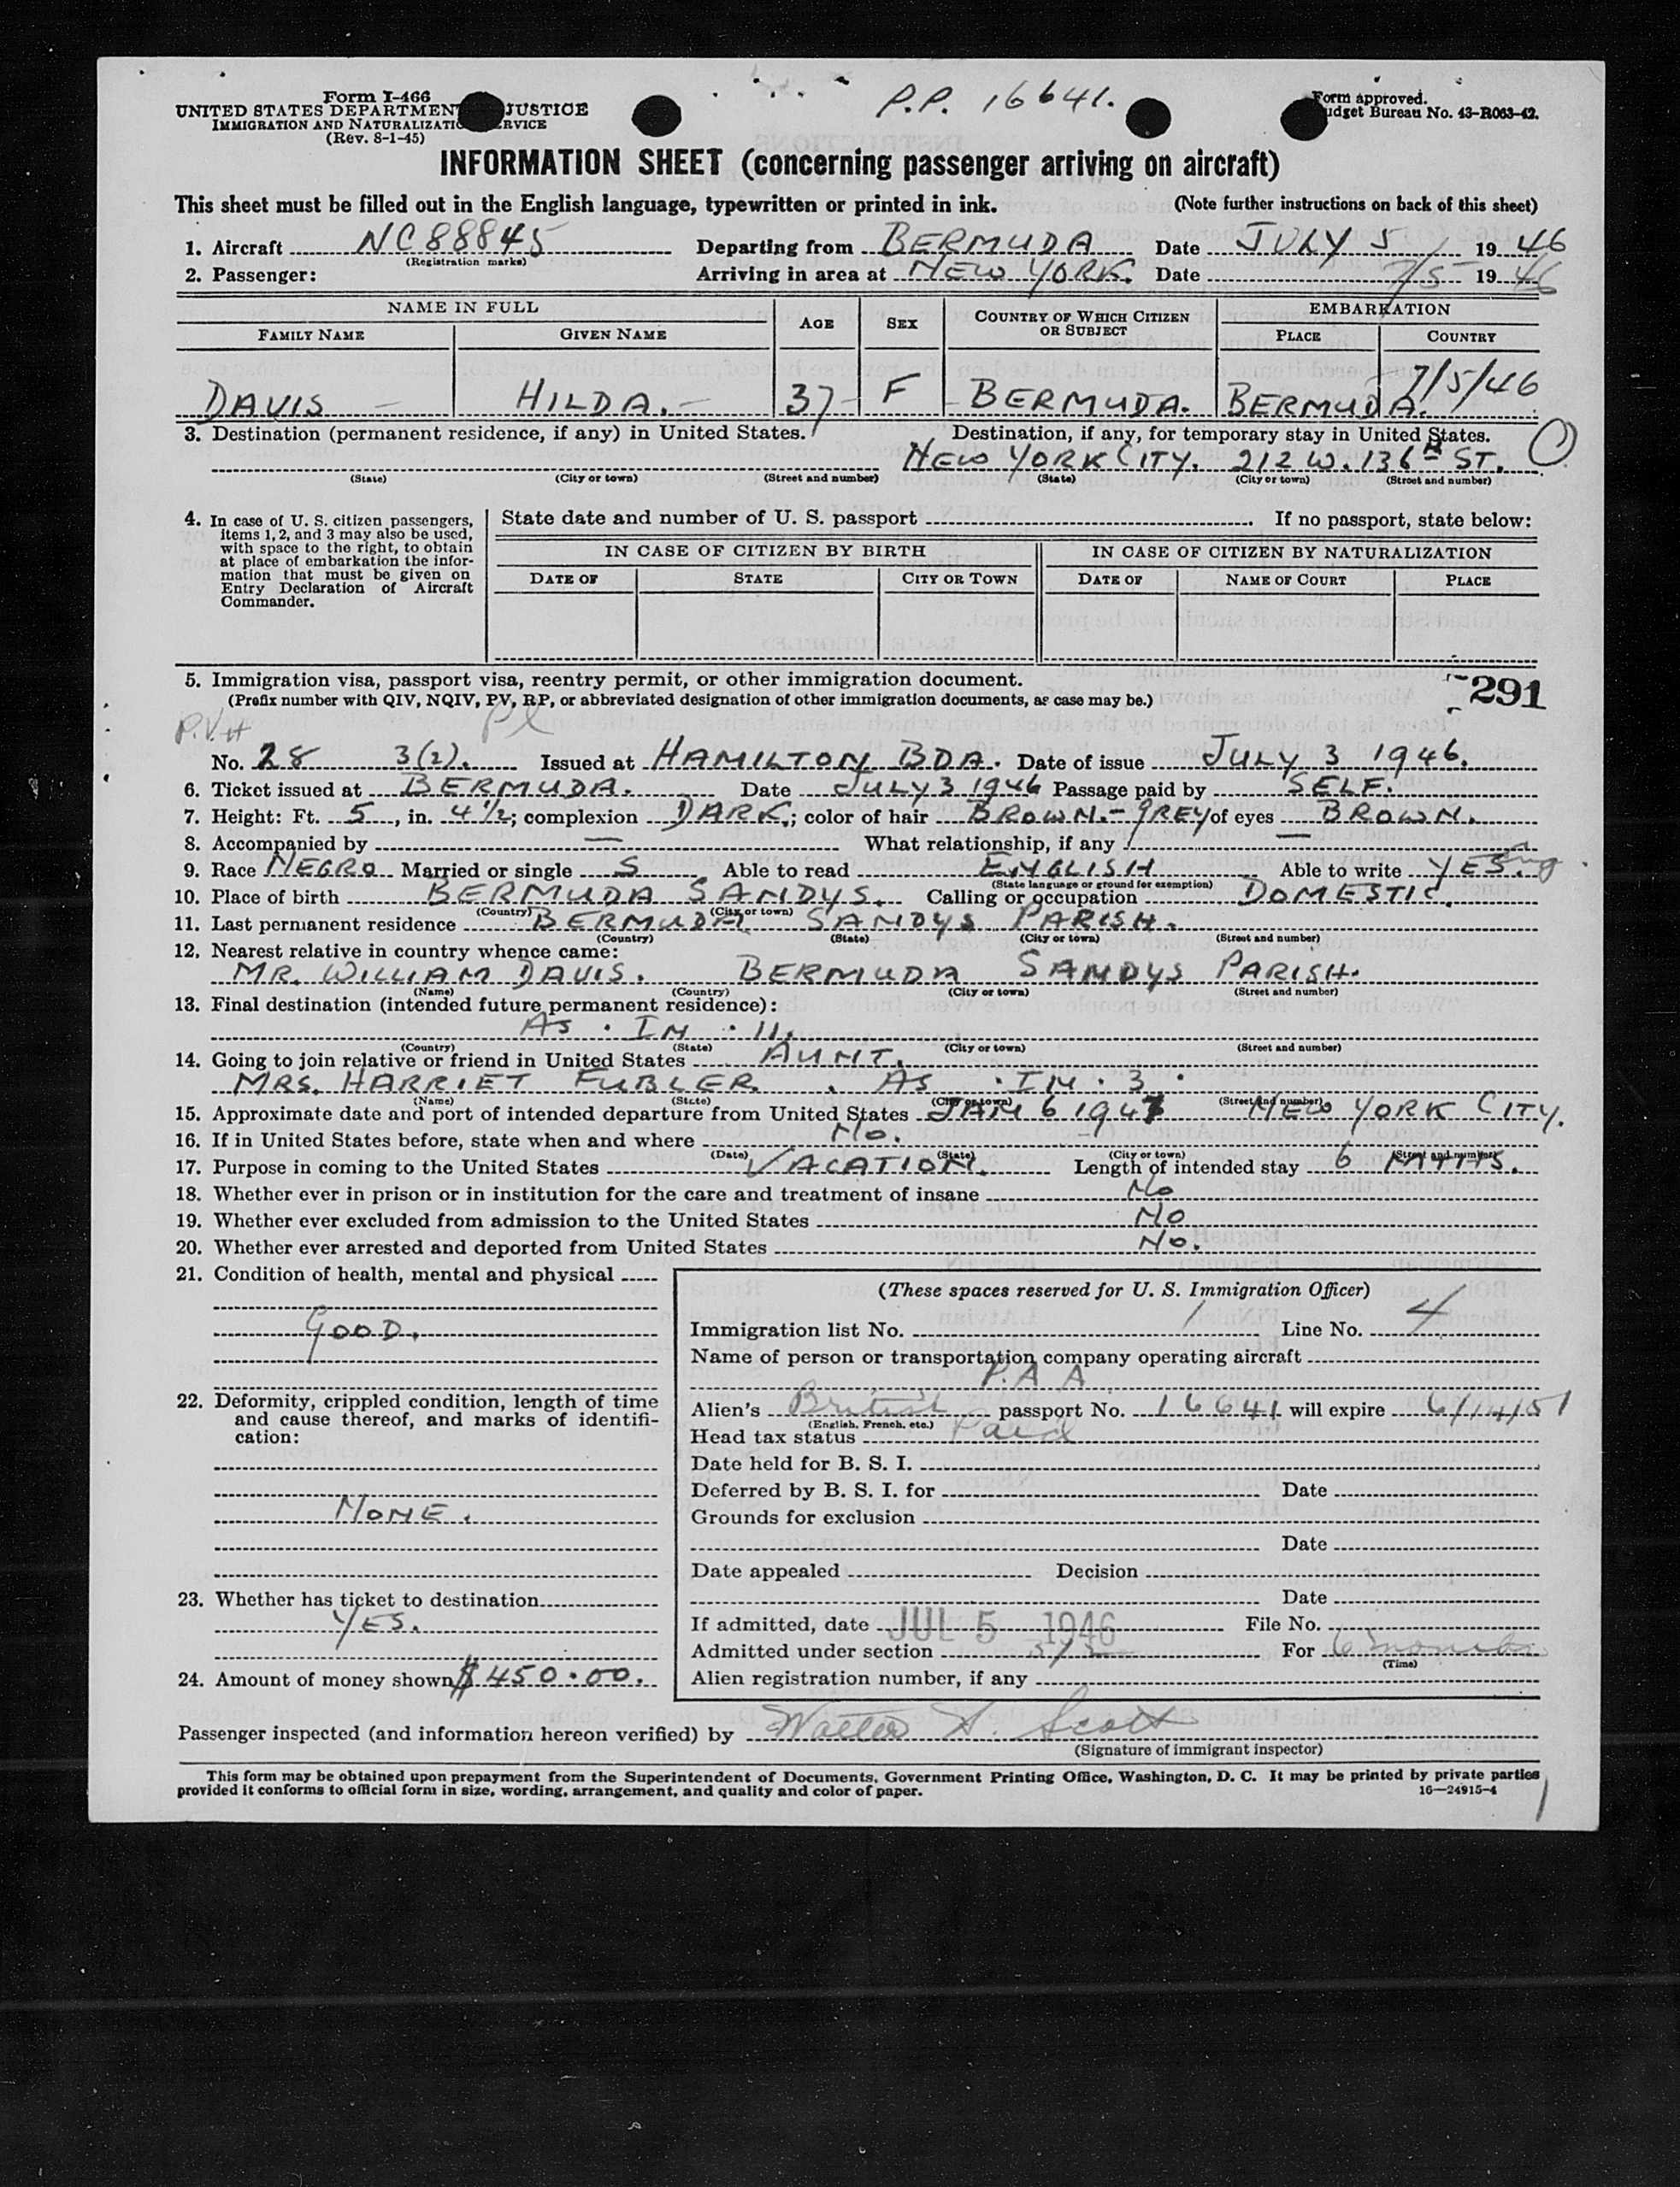 P.P. 16641.
Form I-466
UNITED STATES DEPARTMENT JUSTICE
IMMIGRATION AND NATURALIZATION SERVICE
(Rev. 8-1-45)
Form approved.
Budget Bureau No. 43-R063-42.
INFORMATION SHEET (concerning passenger arriving on aircraft)
This sheet must be filled out in the English language, typewritten or printed in ink. (Note further instructions on back of this sheet)
1. Aircraft NC88845 Departing from BERMUDA Date JULY 5 1946
(Registration marks)
2. Passenger: Arriving in area at NEW YORK. Date 7/5 1946
NAME IN FULL AGE SEX COUNTRY OF WHICH CITIZEN OR SUBJECT EMBARKATION
FAMILY NAME GIVEN NAME PLACE COUNTRY
7/5/46
DAVIS HILDA. 37 F BERMUDA. BERMUDA.
3. Destination (permanent residence, if any) in United States. Destination, if any, for temporary stay in United States.
NEW YORK CITY. 212 W. 136TH ST.
(State) (City or town) (Street and number) (State) (City or town) (Street and number)
4. In case of U. S. citizen passengers, items 1, 2, and 3 may also be used, with space to the right, to obtain at place of embarkation the information that must be given on Entry Declaration of Aircraft Commander.
State date and number of U. S. passport If no passport, state below:
IN CASE OF CITIZEN BY BIRTH IN CASE OF CITIZEN BY NATURALIZATION
DATE OF STATE CITY OR TOWN DATE OF NAME OF COURT PLACE
5. Immigration visa, passport visa, reentry permit, or other immigration document.
(Prefix number with QIV, NQIV, PV, RP, or abbreviated designation of other immigration documents, as case may be.)
291
P.V.#
No. 28 3(2). Issued at HAMILTON BDA. Date of issue JULY 3 1946.
6. Ticket issued at BERMUDA. Date JULY 3 1946 Passage paid by SELF.
7. Height: Ft. 5, in. 4 1/2; complexion DARK.; color of hair BROWN.-GREY of eyes BROWN.
8. Accompanied by — What relationship, if any —
9. Race NEGRO Married or single S Able to read ENGLISH Able to write YES. Eng
(State language or ground for exemption)
10. Place of birth BERMUDA SANDYS. Calling or occupation DOMESTIC.
(Country) (City or town)
11. Last permanent residence BERMUDA SANDYS PARISH.
(Country) (State) (City or town) (Street and number)
12. Nearest relative in country whence came:
MR. WILLIAM DAVIS. BERMUDA SANDYS PARISH.
(Name) (Country) (City or town) (Street and number)
13. Final destination (intended future permanent residence):
AS . IN . 11.
(Country) (State) (City or town) (Street and number)
14. Going to join relative or friend in United States AUNT.
MRS. HARRIET FUBLER . AS . IN . 3 .
(Name) (State) (City or town) (Street and number)
15. Approximate date and port of intended departure from United States JAN 6 1947 NEW YORK CITY.
16. If in United States before, state when and where No.
(Date) (State) (City or town) (Street and number)
17. Purpose in coming to the United States VACATION. Length of intended stay 6 MTHS.
18. Whether ever in prison or in institution for the care and treatment of insane No
19. Whether ever excluded from admission to the United States NO
20. Whether ever arrested and deported from United States No.
21. Condition of health, mental and physical
GOOD.
22. Deformity, crippled condition, length of time and cause thereof, and marks of identification:
NONE.
23. Whether has ticket to destination
YES.
24. Amount of money shown $450.00.
(These spaces reserved for U. S. Immigration Officer)
Immigration list No. 1 Line No. 4
Name of person or transportation company operating aircraft
P.A A
Alien's British passport No. 16641 will expire 6/14/51
(English, French, etc.)
Head tax status Paid
Date held for B. S. I.
Deferred by B. S. I. for Date
Grounds for exclusion
Date
Date appealed Decision
Date
If admitted, date JUL 5 1946 File No.
Admitted under section 3/2 For 6 months
(Time)
Alien registration number, if any
Passenger inspected (and information hereon verified) by Walter A. Scott
(Signature of immigrant inspector)
This form may be obtained upon prepayment from the Superintendent of Documents, Government Printing Office, Washington, D. C. It may be printed by private parties
provided it conforms to official form in size, wording, arrangement, and quality and color of paper. 16—24915-4